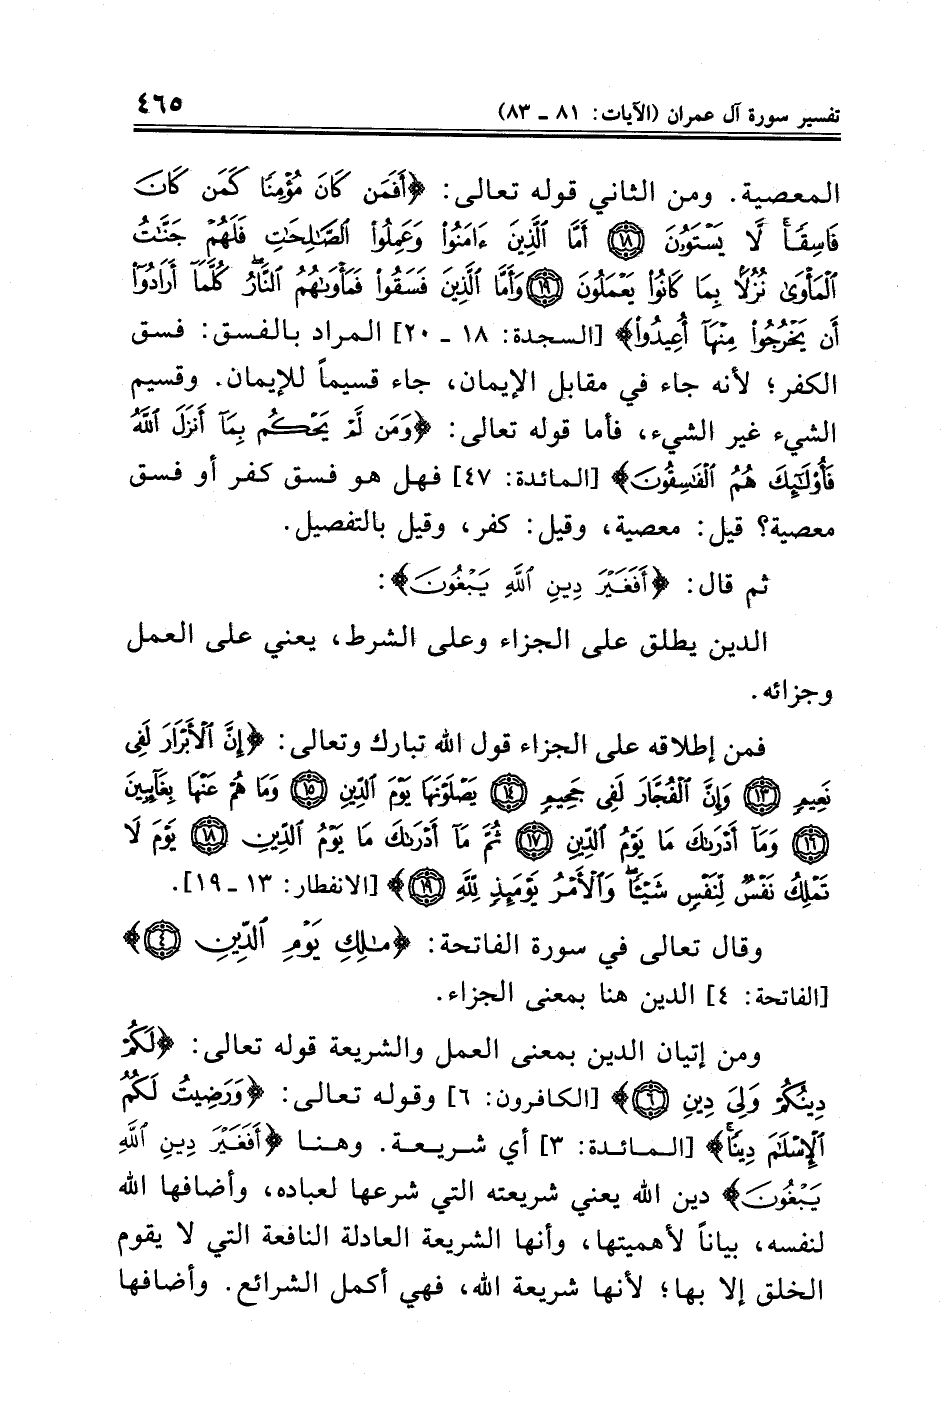 تفسير سورة آل عمران (الآيات: ٨١ ـ ٨٣) ٤٦٥
المعصية. ومن الثاني قوله تعالى: ﴿أَفَمَن كَانَ مُؤْمِنًا كَمَن كَانَ
فَاسِقًا ۚ لَّا يَسْتَوُۥنَ ۝١٨ أَمَّا ٱلَّذِينَ ءَامَنُوا۟ وَعَمِلُوا۟ ٱلصَّـٰلِحَـٰتِ فَلَهُمْ جَنَّـٰتُ
ٱلْمَأْوَىٰ نُزُلًۢا بِمَا كَانُوا۟ يَعْمَلُونَ ۝١٩ وَأَمَّا ٱلَّذِينَ فَسَقُوا۟ فَمَأْوَىٰهُمُ ٱلنَّارُ ۖ كُلَّمَآ أَرَادُوٓا۟
أَن يَخْرُجُوا۟ مِنْهَآ أُعِيدُوا۟﴾ [السجدة: ١٨ ـ ٢٠] المراد بالفسق: فسق
الكفر؛ لأنه جاء في مقابل الإيمان، جاء قسيماً للإيمان. وقسيم
الشيء غير الشيء، فأما قوله تعالى: ﴿وَمَن لَّمْ يَحْكُم بِمَآ أَنزَلَ ٱللَّهُ
فَأُو۟لَـٰٓئِكَ هُمُ ٱلْفَـٰسِقُونَ﴾ [المائدة: ٤٧] فهل هو فسق كفر أو فسق
معصية؟ قيل: معصية، وقيل: كفر، وقيل بالتفصيل.
ثم قال: ﴿أَفَغَيْرَ دِينِ ٱللَّهِ يَبْغُونَ﴾:
الدين يطلق على الجزاء وعلى الشرط، يعني على العمل
وجزائه.
فمن إطلاقه على الجزاء قول الله تبارك وتعالى: ﴿إِنَّ ٱلْأَبْرَارَ لَفِى
نَعِيمٍ ۝١٣ وَإِنَّ ٱلْفُجَّارَ لَفِى جَحِيمٍ ۝١٤ يَصْلَوْنَهَا يَوْمَ ٱلدِّينِ ۝١٥ وَمَا هُمْ عَنْهَا بِغَآئِبِينَ
۝١٦ وَمَآ أَدْرَىٰكَ مَا يَوْمُ ٱلدِّينِ ۝١٧ ثُمَّ مَآ أَدْرَىٰكَ مَا يَوْمُ ٱلدِّينِ ۝١٨ يَوْمَ لَا
تَمْلِكُ نَفْسٌ لِّنَفْسٍ شَيْـًٔا ۖ وَٱلْأَمْرُ يَوْمَئِذٍ لِّلَّهِ ۝١٩﴾ [الانفطار: ١٣ ـ ١٩].
وقال تعالى في سورة الفاتحة: ﴿مَـٰلِكِ يَوْمِ ٱلدِّينِ ۝٤﴾
[الفاتحة: ٤] الدين هنا بمعنى الجزاء.
ومن إتيان الدين بمعنى العمل والشريعة قوله تعالى: ﴿لَكُمْ
دِينُكُمْ وَلِىَ دِينِ ۝٦﴾ [الكافرون: ٦] وقوله تعالى: ﴿وَرَضِيتُ لَكُمُ
ٱلْإِسْلَـٰمَ دِينًا ۚ﴾ [المائدة: ٣] أي شريعة. وهنا ﴿أَفَغَيْرَ دِينِ ٱللَّهِ
يَبْغُونَ﴾ دين الله يعني شريعته التي شرعها لعباده، وأضافها الله
لنفسه، بياناً لأهميتها، وأنها الشريعة العادلة النافعة التي لا يقوم
الخلق إلا بها؛ لأنها شريعة الله، فهي أكمل الشرائع. وأضافها